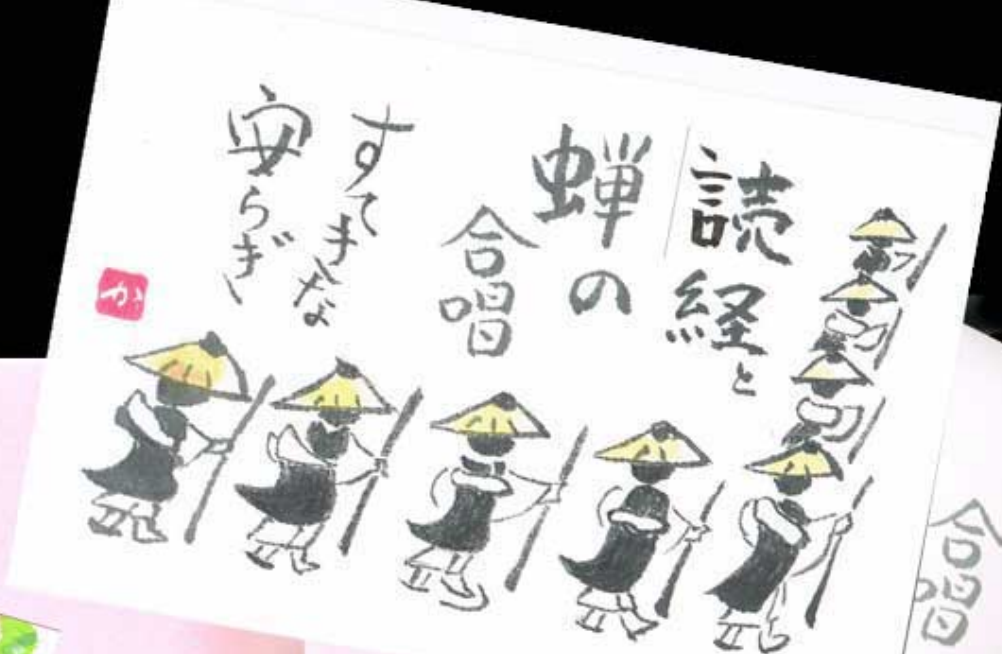 読経と
蝉の
合唱
すてきな
安らぎ
か
合唱